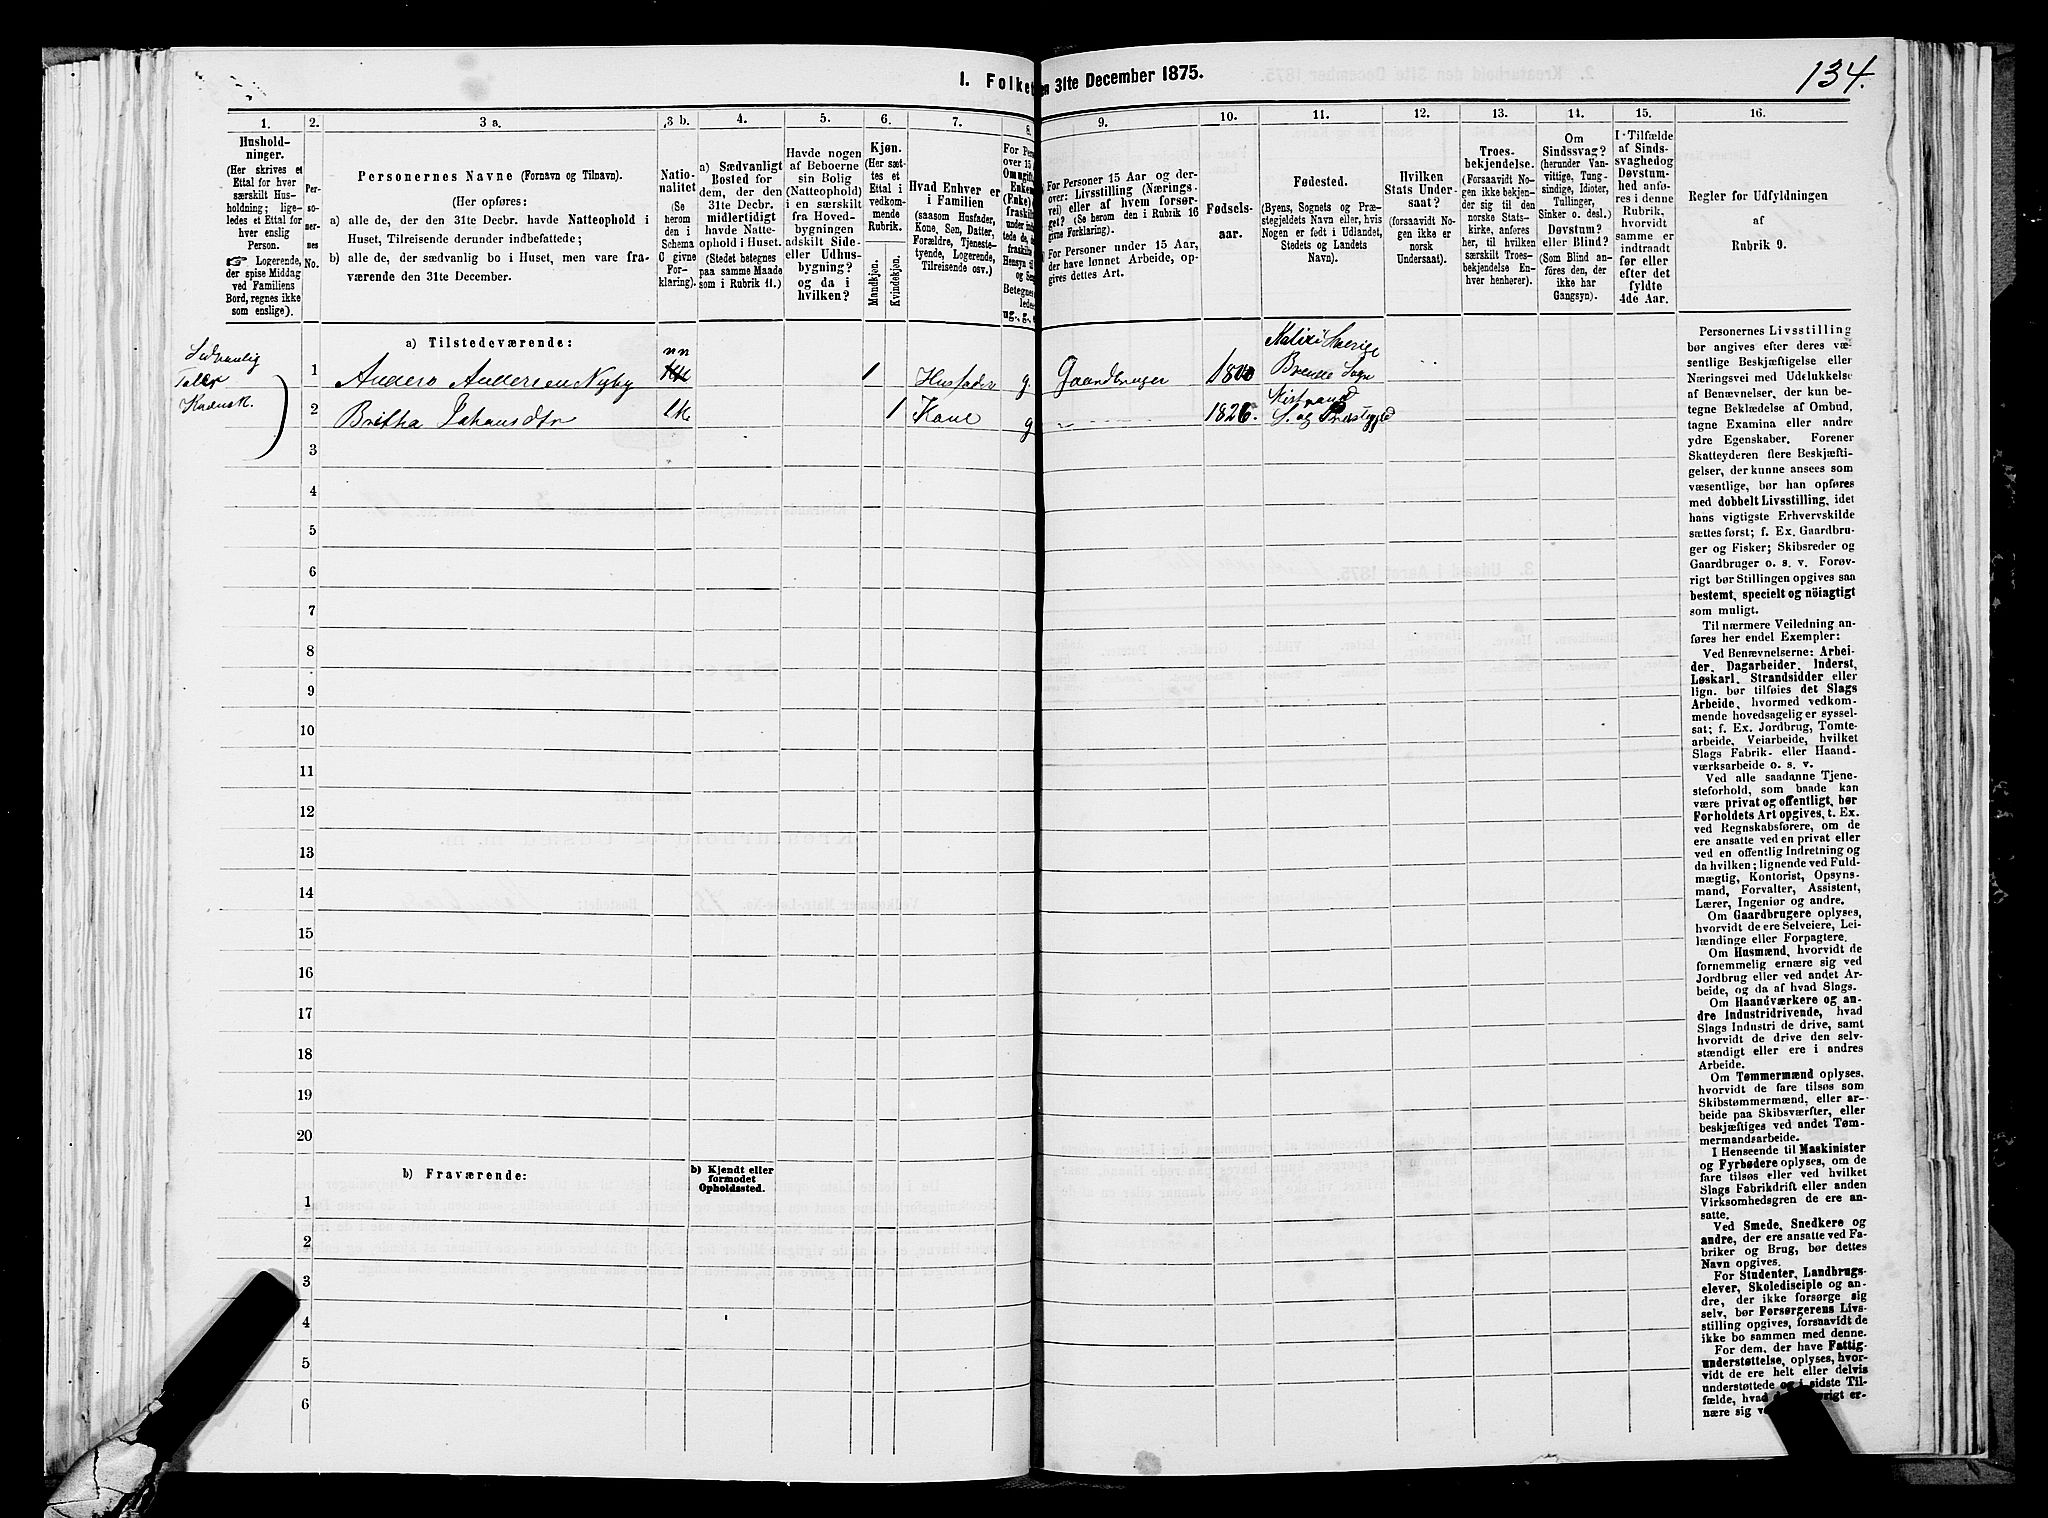 134.
I. Folket
en 31te December 1875.
1.
2.
3 a.
3 b.
4.
5.
6.
7.
8.
9.
10.
11.
12.
13.
14.
15.
16.
Hushold-
ninger.
(Her skrives et
Ettal for hver
særskilt Hus-
holdning; lige-
ledes et Ettal
for hver enslig
Person.
☞ Logerende,
der spise Middag
ved Familiens
Bord, regnes ikke
som enslige).
Per-
so-
ner-
nes
No.
Personernes Navne (Fornavn og Tilnavn).
(Her opføres:
a) alle de, der den 31te Decbr. havde Natteophold i
Huset, Tilreisende derunder indbefattede;
b) alle de, der sædvanlig bo i Huset, men vare fra-
værende den 31te December.
Natio-
nalitet
(Se
herom
den i
Schema
C givne
For-
klaring.)
a) Sædvanligt
Bosted for
dem, der den
31te Decbr.
midlertidigt
havde Natte-
ophold i Huset.
(Stedet betegnes
paa samme Maade
som i Rubrik 11.)
Havde nogen
af Beboerne
sin Bolig
(Natteophold)
i en særskilt
fra Hoved-
bygningen
adskilt Side-
eller Udhus-
bygning?
og da i
hvilken?
Kjøn.
(Her sæt-
tes et
Ettal i
vedkom-
mende
Rubrik.
Mandkjøn.
Kvindekjøn.
Hvad Enhver er
i Familien
(saasom Husfader,
Kone, Søn, Datter,
Forældre, Tjeneste-
tyende, Logerende,
Tilreisende osv.)
For Pers
over 15
Om ugift,
Enken
(Enke)
fraskilt
Betegnes
ug., g.,
For Personer 15 Aar og der-
over: Livsstilling (Nærings-
vei) eller af hvem forsør-
get? (Se herom de i Rubrik 16
givne Forklaring).
For Personer under 15 Aar,
der have lønnet Arbeide, op-
gives dettes Art.
Fødsels-
aar.
Fødested.
(Byens, Sognets og Præ-
stegjeldets Navn eller, hvis
Nogen er født i Udlandet,
Stedets og Landets
Navn).
Hvilken
Stats Under-
saat?
(forsaavidt No-
gen ikke er
norsk
Undersaat).
Troes-
bekjendelse.
(Forsaavidt No-
gen ikke bekjen-
der sig til den
norske Stats-
kirke, anføres
her, til hvilken
særskilt Troes-
bekjendelse En-
hver henhører).
Om
Sindssvag?
(herunder Van-
vittige, Tung-
sindige, Idioter,
Tullinger,
Sinker o. desl.)
Døvstum?
eller Blind?
(Som Blind an-
føres den, der
ikke har
Gangsyn).
I Tilfælde
af Sinds-
svaghed og
Døvstum-
hed anfø-
res i denne
Rubrik,
hvorvidt
samme er
indtraadt
før eller
efter det
fyldte
4de Aar.
Regler for Udfyldningen
af
Rubrik 9.
a) Tilstedeværende:
Sedvanlig
Taler
Kvænsk.
1 Anders Andersen Nyby nn 1 Husfader g. Gaardbruger Kalix i Sverige
2 Britha Johansdtr lK 1 Kone g 1826. Kistrand S. og Præstegjeld
3
4
5
6
7
8
9
10
11
12
13
14
15
16
17
18
19
20
b) Fraværende:
b) Kjendt eller
formodet
Opholdssted.
1
2
3
4
5
6
Personernes Livsstilling
bør angives efter deres væ-
sentlige Beskjæftigelse eller
Næringsvei med Udelukkelse
af Benævnelser, der kun be-
tegne Beklædelse af Ombud,
tagne Examina eller andre
ydre Egenskaber. Forener
Skatteyderen flere Beskjæfti-
gelser, der kunne ansees som
væsentlige, bør han opføres
med dobbelt Livsstilling, idet
hans vigtigste Erhvervskilde
sættes først; f. Ex. Gaardbru-
ger og Fisker; Skibsreder og
Gaardbruger o. s. v. Forøv-
rigt bør Stillingen opgives saa
bestemt, specielt og nöiagtigt
som muligt.
Til nærmere Veiledning an-
føres her endel Exempler:
Ved Benævnelserne: Arbei-
der, Dagarbeider, Inderst,
Løskarl, Strandsidder eller
lign. bør tilføies det Slags
Arbeide, hvormed vedkom-
mende hovedsagelig er syssel-
sat; f. Ex. Jordbrug, Tomte-
arbeide, Veiarbeide, hvilket
Slags Fabrik- eller Haand-
værksarbeide o. s. v.
Ved alle saadanne Tjene-
steforhold, som baade kan
være privat og offentligt, bør
Forholdets Art opgives, t. Ex.
ved Regnskabsførere, om de
ere ansatte ved en privat eller
ved en offentlig Indretning og
da hvilken; lignende ved Fuld-
mægtig, Kontorist, Opsyns-
mand, Forvalter, Assistent,
Lærer, Ingeniør og andre.
Om Gaardbrugere oplyses,
hvorvidt de ere Selveiere, Lei-
lændinge eller Forpagtere.
Om Husmænd, hvorvidt de
fornemmelig ernære sig ved
Jordbrug eller ved andet Ar-
beide, og da af hvad Slags.
Om Haandværkere og an-
dre Industridrivende, hvad
Slags Industri de drive, samt
hvorvidt de drive den selv-
stændigt eller ere i andres
Arbeide.
Om Tømmermænd oplyses,
hvorvidt de fare tilsøs som
Skibstømmermænd, eller ar-
beide paa Skibsværfter, eller
beskjæftiges ved andet Tøm-
mermandsarbeide.
I Henseende til Maskinister
og Fyrbødere oplyses, om de
fare tilsøs eller ved hvilket
Slags Fabrikdrift eller anden
Virksomhedsgren de ere an-
satte.
Ved Smede, Snedkere og
andre, der ere ansatte ved Fa-
briker og Brug, bør dettes
Navn opgives.
For Studenter, Landbrugs-
elever, Skoledisciple og an-
dre, der ikke forsørge sig
selv, bør Forsørgerens Livs-
stilling opgives, forsaavidt de
ikke bo sammen med denne.
For dem, der have Fattig-
understøttelse, oplyses, hvor-
vidt de ere helt eller delvis
understøttede og i sidste Til-
fælde, hvad
nære sig